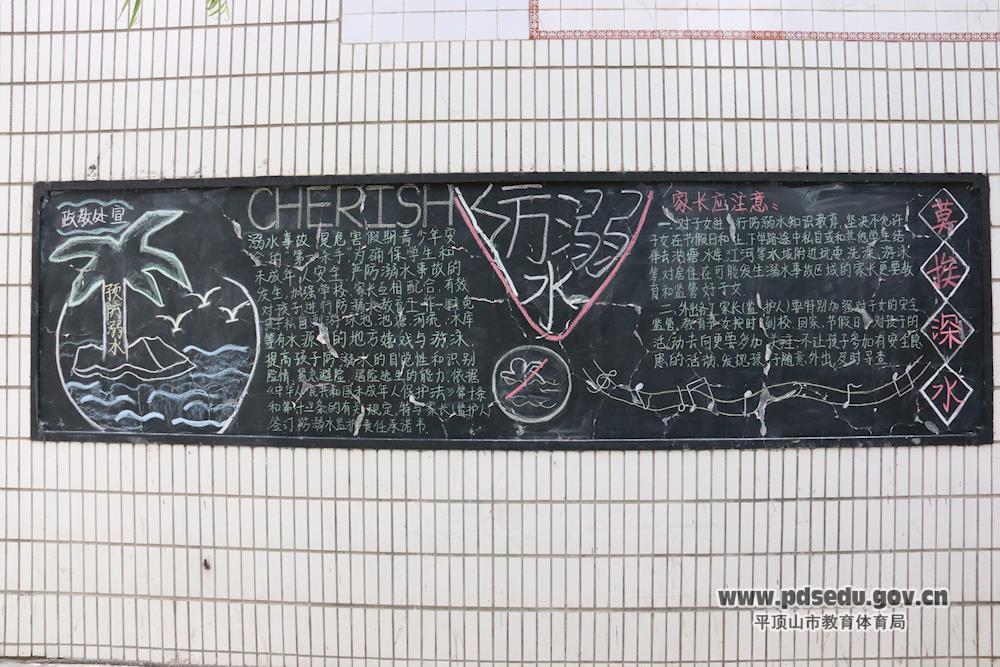 政教处宣
预防溺水
CHERISH
溺水事故是危害假期青少年安
全的"第一杀手",为确保学生和
未成年人安全,严防溺水事故的
发生,加强学校、家长互相配合,有效
对孩子进行防溺水教育工作,避免
孩子私自到游泳池、池塘、河流、水库
等有水源的地方嬉戏与游泳,
提高孩子防溺水的自觉性和识别
险情、紧急避险、遇险逃生的能力,依据
《中华人民共和国未成年人保护法》第十条
和第十三条的有关规定,特与家长(监护人)
签订防溺水监护责任承诺书.
防溺
水
家长应注意:
一、对子女进行防溺水知识教育,坚决不允许
子女在节假日和上下学途中私自或和其他学生结
伴去池塘、水库、江河等水域附近玩耍、洗澡、游泳
等,对居住在可能发生溺水事故区域的家长更要教
育和监管好子女.
二、外出务工家长(监护人)要特别加强对子女的安全
监管,教育子女按时到校、回家,节假日对孩子的
活动去向更要多加关注,不让孩子参加有安全隐
患的活动,发现孩子随意外出,及时寻查.
莫
挨
深
水
www.pdsedu.gov.cn
平顶山市教育体育局